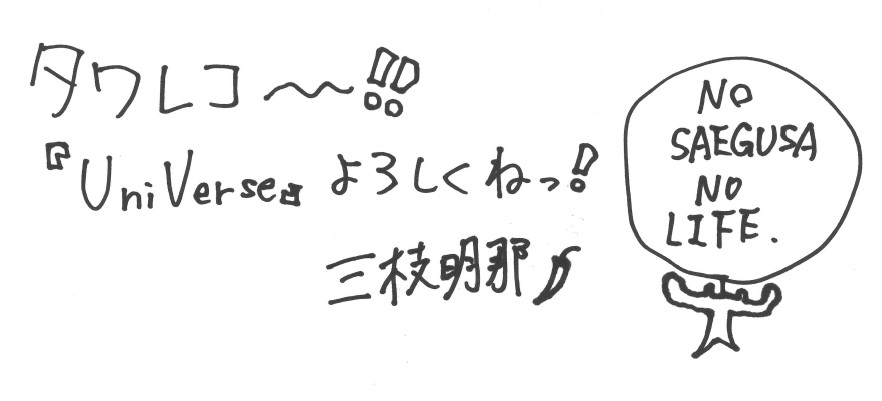 タワレコ〜!!
『UniVerse』よろしくねっ!
三枝明那
NO
SAEGUSA
NO
LIFE.